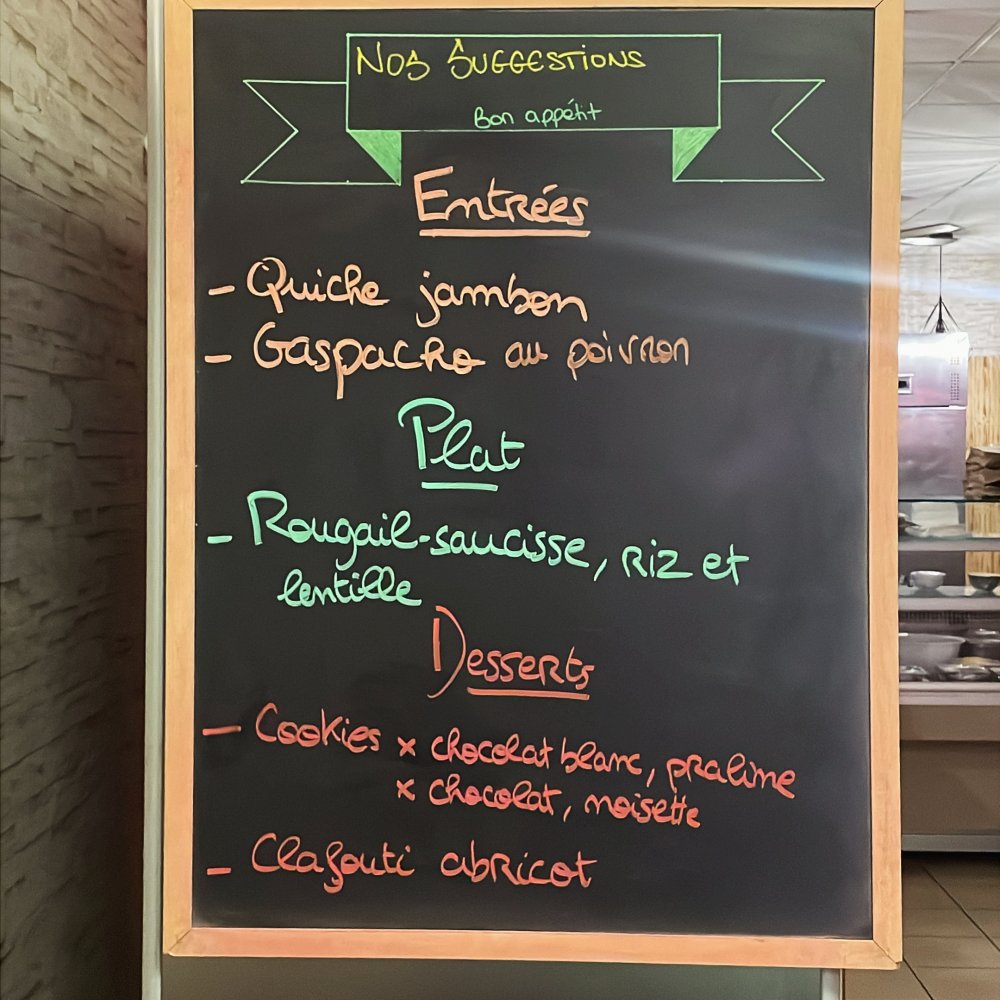 Nos Suggestions
Bon appétit
Entrées
- Quiche jambon
- Gaspacho au poivron
Plat
- Rougail-saucisse, riz et
lentille
Desserts
- Cookies x chocolat blanc, praline
x chocolat, noisette
- Clafouti abricot